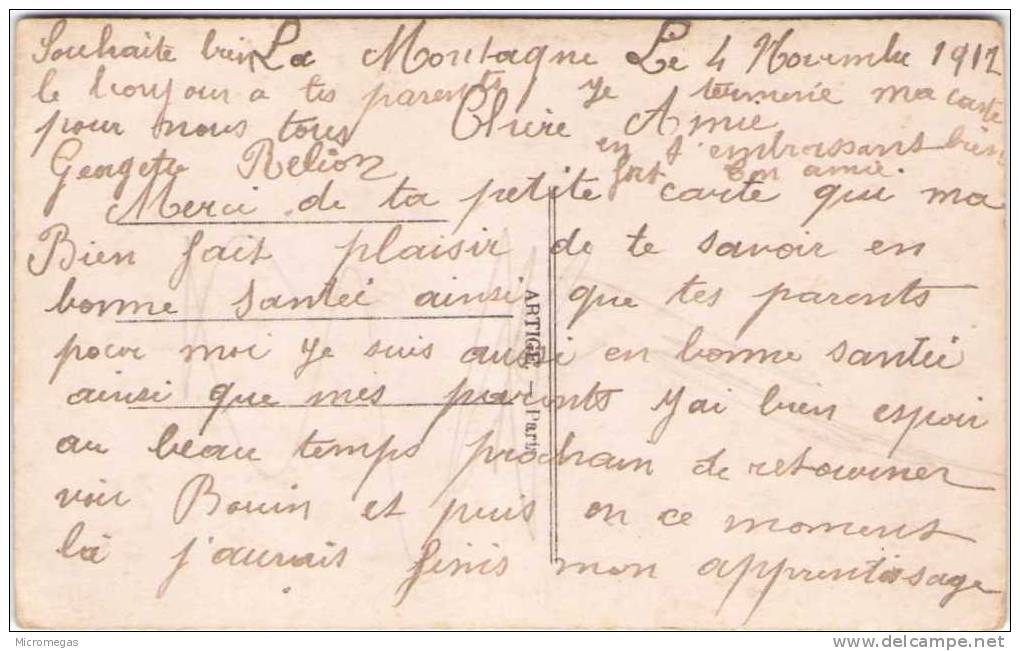 La Montagne Le 4 Novembre 1912
Chère Amie
Merci de ta petite carte qui ma
Bien fait plaisir de te savoir en
bonne santée ainsi que tes parents
pour moi je suis aussi en bonne santée
ainsi que mes parents j'ai bien espoir
au beau temps prochain de retourner
voir Bouin et puis en ce moment
là j'aurais finis mon apprentissage
Souhaite bien
le bonjour a tes parents
pour nous tous
je termine ma carte
en t'embrassant bien
fort ton amie
Georgette Relion
ARTIGE, — Paris
Micromegas
www.delcampe.net